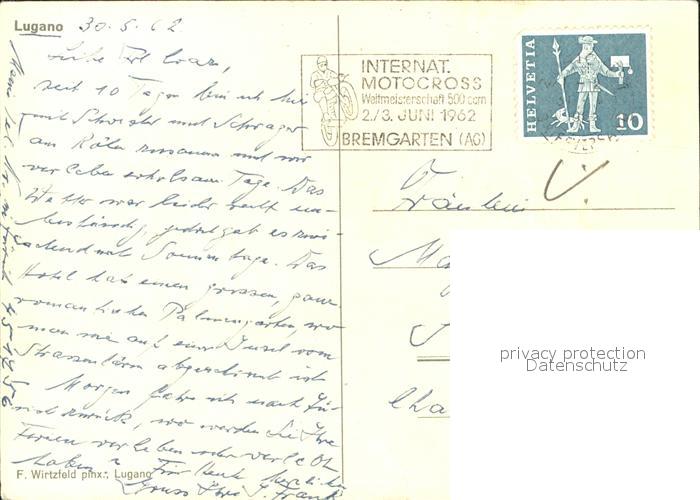 Lugano 30.5.62
Liebe Frl.
seit 10 Tagen bin ich hier
mit Schwester und Schwager
aus Köln zusammen und wir
verleben erholsame Tage. Das
Wetter war leider recht un-
beständig, jedoch gab es zwi-
schendurch Sonnentage. Das
Hotel hat einen grossen, ganz
romantischen Palmengarten, wo
man wie auf einer Insel vom
Strassenlärm abgeschirmt ist
Morgen fahre ich nach Zü-
rich zurück, wo werden Sie Ihre
Ferien verleben oder verlebt
haben? Für heute herzliche
Gruss Ihre S. Frank
Meine Tel. Nr. in Zürich
F. Wirtzfeld pinx., Lugano
INTERNAT.
MOTOCROSS
Weltmeisterschaft 500 ccm
2./3. JUNI 1962
BREMGARTEN (AG)
HELVETIA
10
Fräulein
privacy protection
Datenschutz